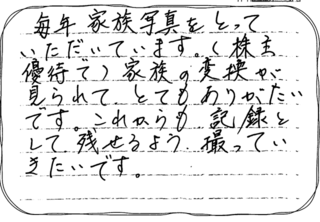 毎年家族写真をとって
いただいています。(株主
優待で)家族の変換が
見られて、とてもありがたい
です。これからも記録と
して残せるよう、撮ってい
きたいです。